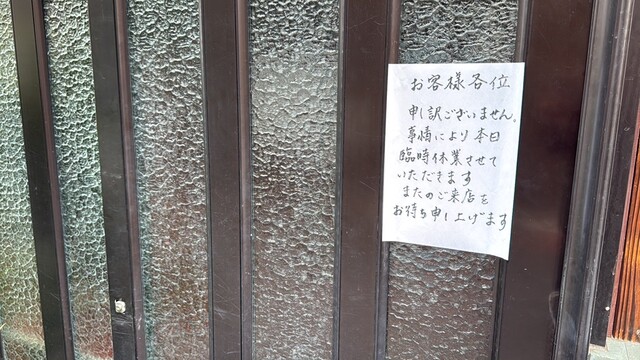 お客様各位
申し訳ございません。
事情により本日
臨時休業させて
いただきます
またのご来店を
お待ち申し上げます